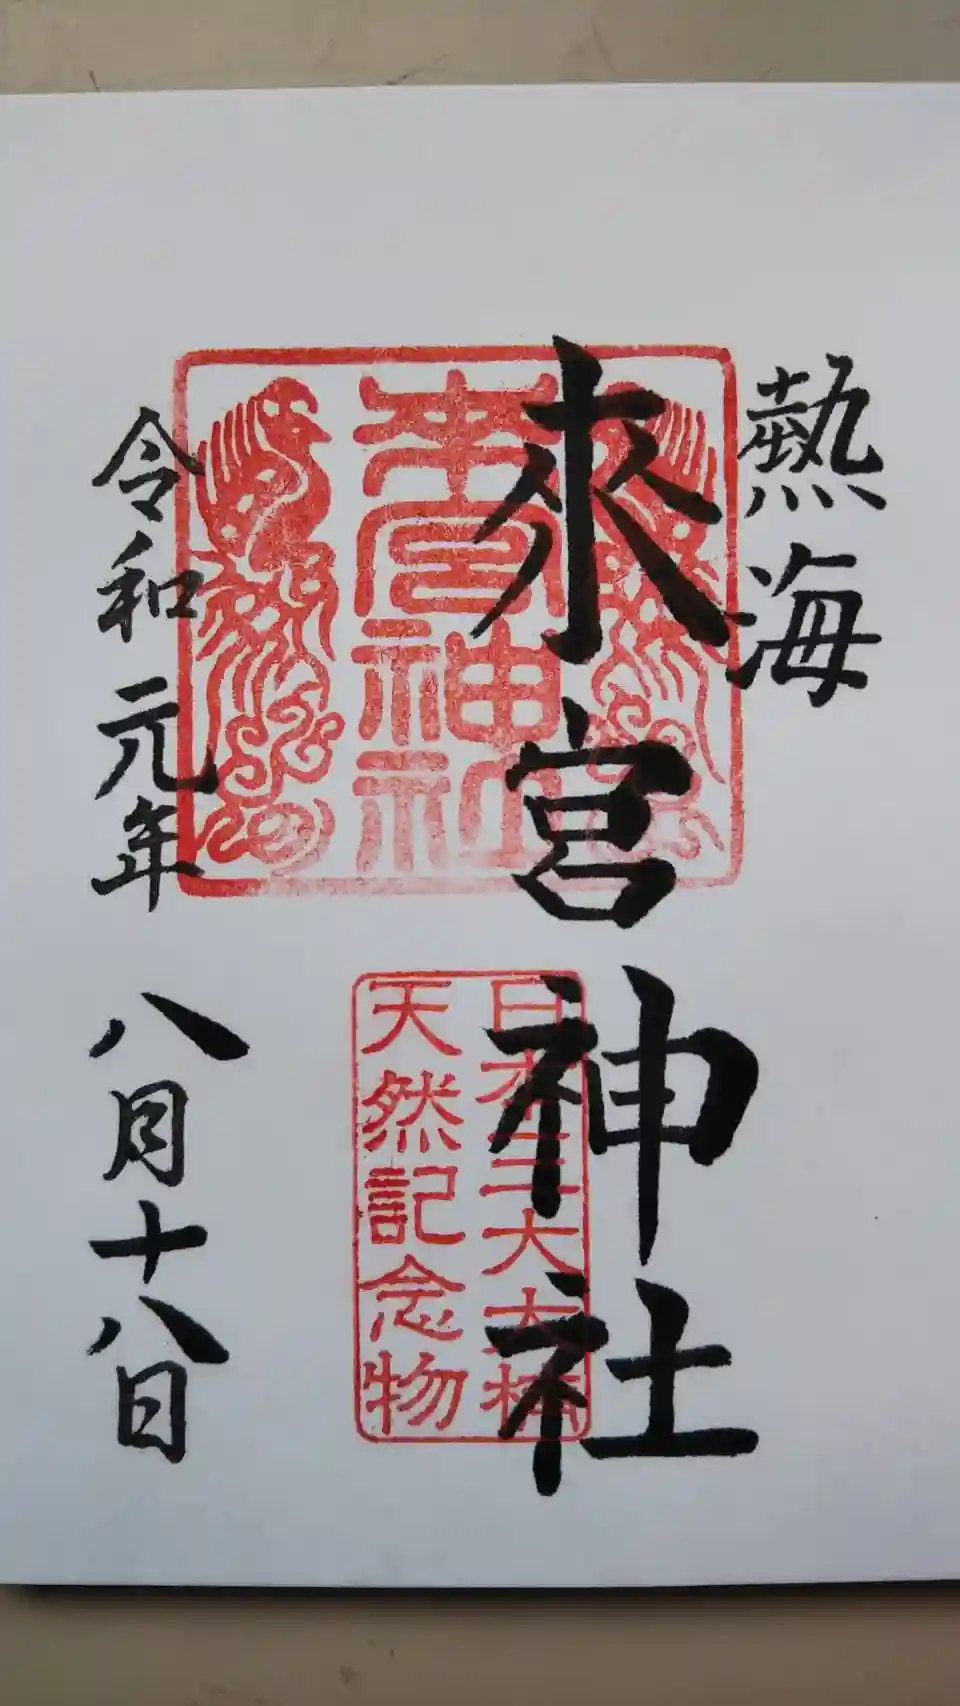 熱海
來宮神社
來宮神社
日本三大大楠
天然記念物
令和元年八月十八日